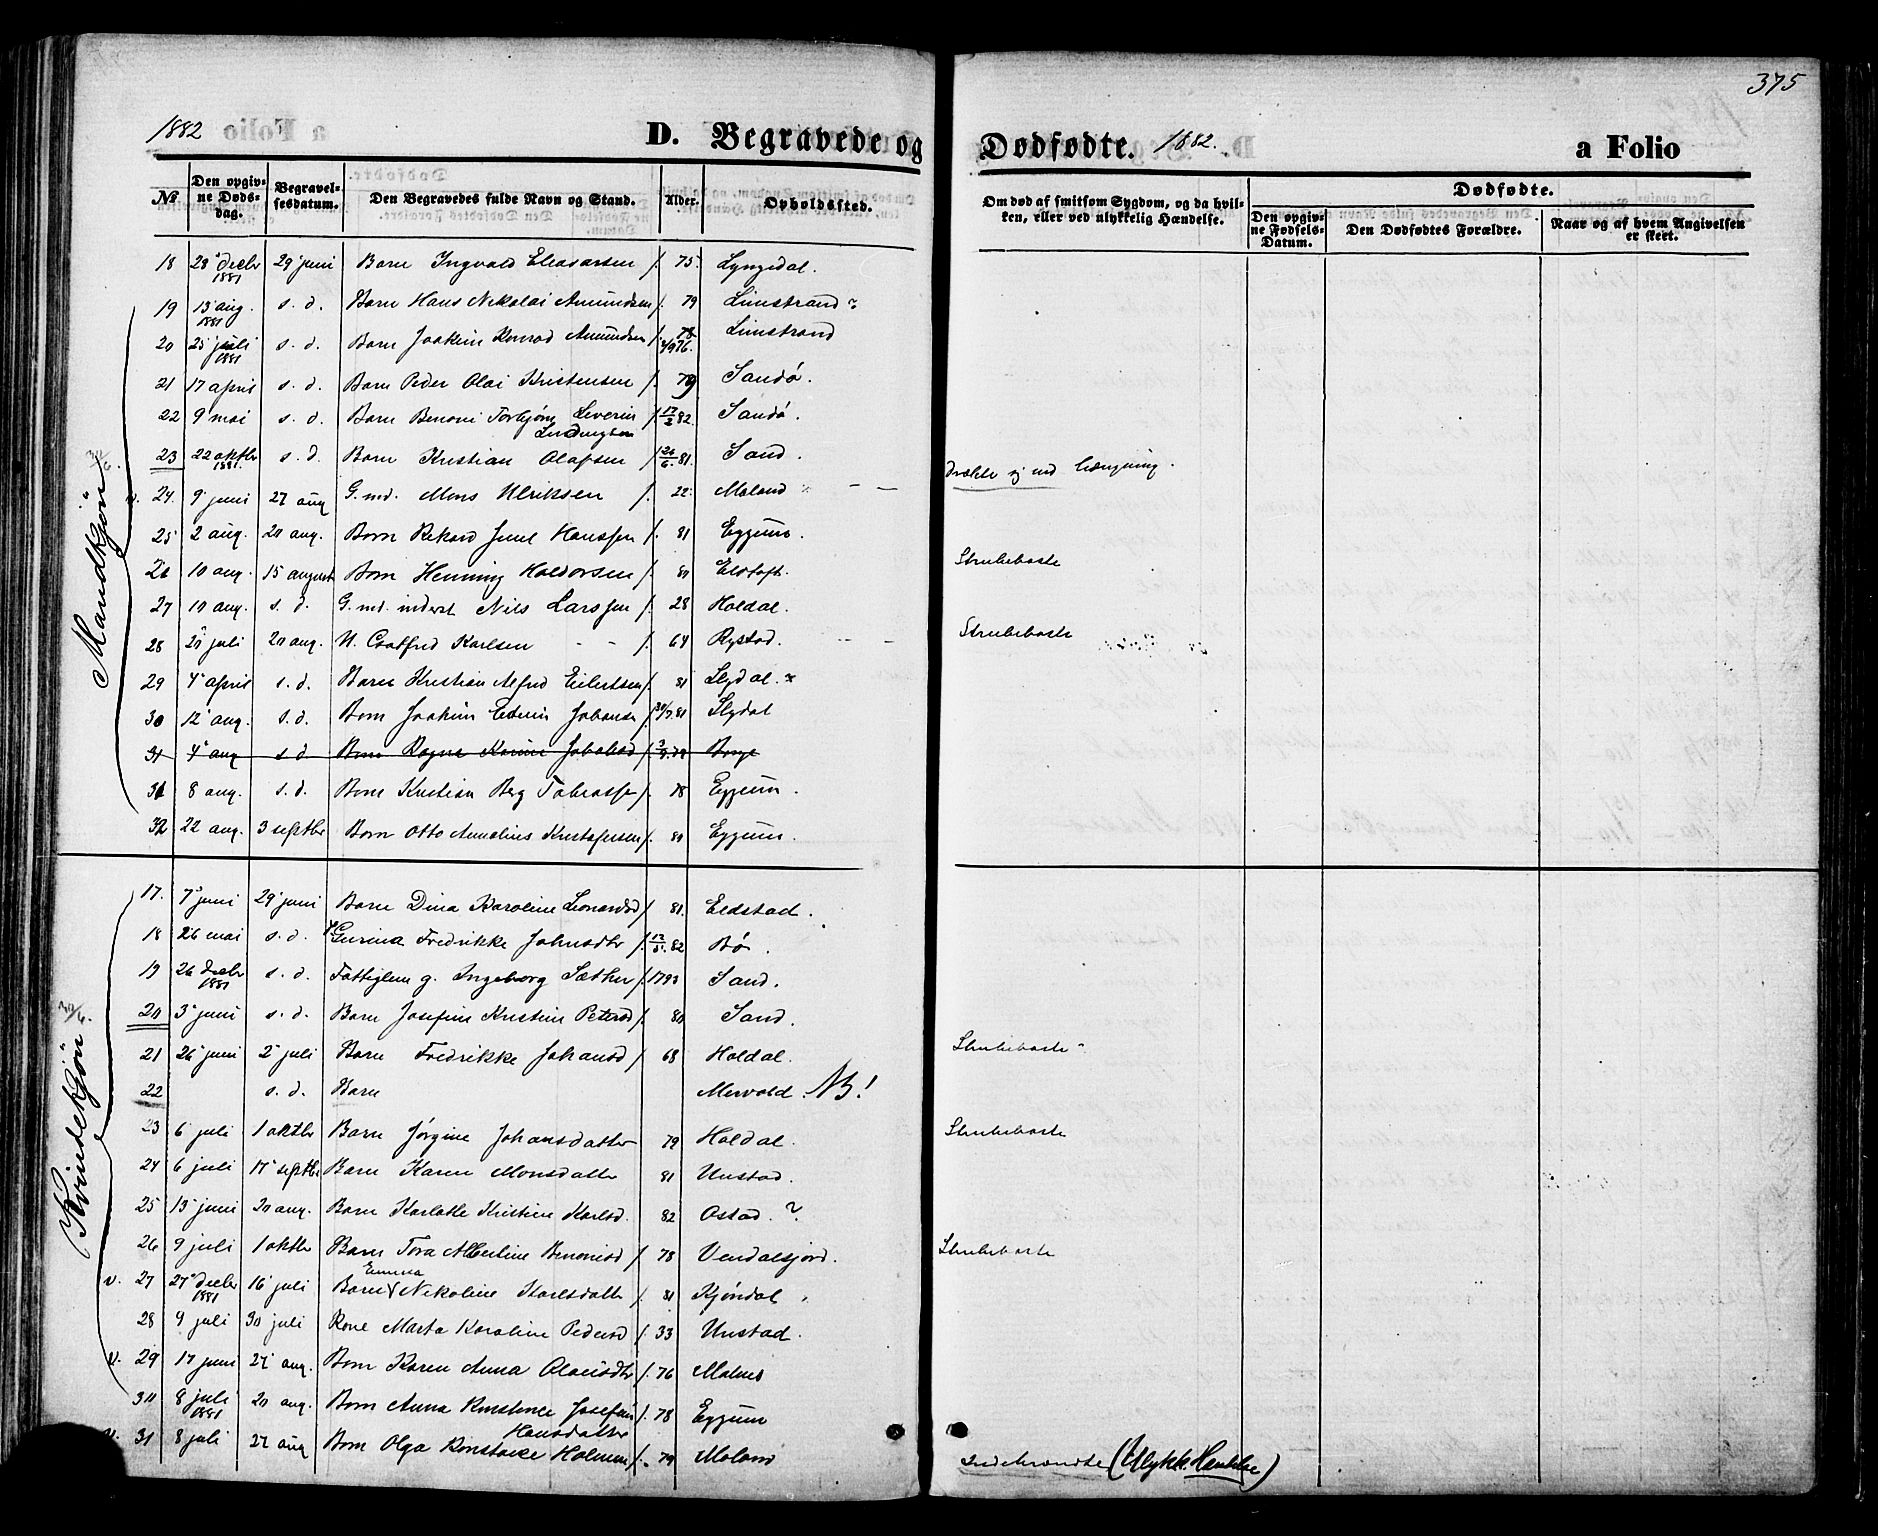 375
1882 D. Begravede og Dødfødte. 1882. a Folio
No
Den opgivne Dødsdag.
Begravelsesdatum.
Den Begravedes fulde Navn og Stand.
Alder.
Opholdssted.
Om død af smitsom Sygdom, og da hvilken, eller ved ulykkelig Hændelse.
Dødfødte.
Den opgivne Fødsels-Datum.
Den Dødfødtes Forældre.
Naar og af hvem Angivelsen er skeet.
Mandkjøn
18 28 decbr 1881 29 juni Barn Ingvald Eleasarsen f. 75 Lyngedal.
19 13 aug. 1881 s. d. Barn Hans Nikolai Amundsen f. 79 Limstrand
20 25 juli 1881 s. d. Barn Joakim Konrad Amundsen f. 4/9 76. Limstrand
21 17 april s. d. Barn Peder Olai Kristensen f. 79 Sandø.
22 9 mai s. d. Barn Benoni Torbjørn Severin Ludvigsen f. 17/2 82. Sandø.
23 22 oktbr 1881. s. d. Barn Kristian Olafsen f. 24/6 81. Sand.
v. 24. 9 juni 27 aug G. md. Mons Ulriksen f. 22 Moland
25 2 aug. 20 aug. Barn Rikard Juul Hanssen f. 81 Eggum.
26 10 aug. 15 august Barn Henning Haldorsen f. 81 Eltoft. Strubehoste
27 10 aug. s. d. G. md. inderst Nils Larssen f. 28 Holdal.
28 20 juli 20 aug. U. Gotfred Karlsen f. 64 Rystad. Strubehoste
29 4 april s. d. Barn Kristian Alfred Eilertsen f. 81 Slydal.
30 12 aug. s. d. Barn Joakim Edvin Johansen f. 30/7 81 Slydal
31 4 aug s. d. Barn Ragna Karine f. Borge
31 8 aug. s. d. Barn Kristian Berg Tobiassen f. 78 Eggum.
32 22 aug. 3 septbr Barn Otto Annelius Kristofersen f. 80 Eggum.
Kvindekjøn
17. 7 juni 29 juni Barn Dina Karoline Leonardsd f. 81. Eldstad.
18 26 mai s. d. Gurina Fredrikke Johnsdtr f. 12/5. 82 Bø.
19 26 decbr 1881 s. d. Fattiglem g. Ingeborg Sæther f. 1793 Sand.
20 3 juni s. d. Barn Josefine Kristine Petersd f. 80 Sand.
21 26 juni 2 juli Barn Fredrikke Johansd f. 68 Holdal. Strubehoste
22 s. d. Barn Mervold. NB!
23 6 juli 1 oktbr Barn Jørgine Johansdatter 79 Holdal. Strubehoste
24 6 juli 17 septbr Barn Karen Monsdatter 81 Unstad.
25 13 juni 20 aug. Barn Karlotte Kristine Karlsd. 82 Ostad.
26 9 juli 1 oktbr Barn Tora Albertine Benonisd f. 78 Vendalsjord. Strubehoste
v. 27 27 decbr 1881 16 juli Barn Emma Nikoline Karlsdatter f. 81 Kjøndal
28 9 juli 30 juli Kone Marta Karoline Pedersd f. 33 Unstad.
v. 29 17 juni 27 aug. Barn Karen Anna Olausdtr f. 76 Malnes
30 8 juli 1881 20 aug. Barn Anna Konstance Josefine Hansdatter f. 78 Eggum
v. 31 8 juli 27 aug Barn Olga Konstance f. 79 Moland Indebrændte (Ulykk. Hændelse)